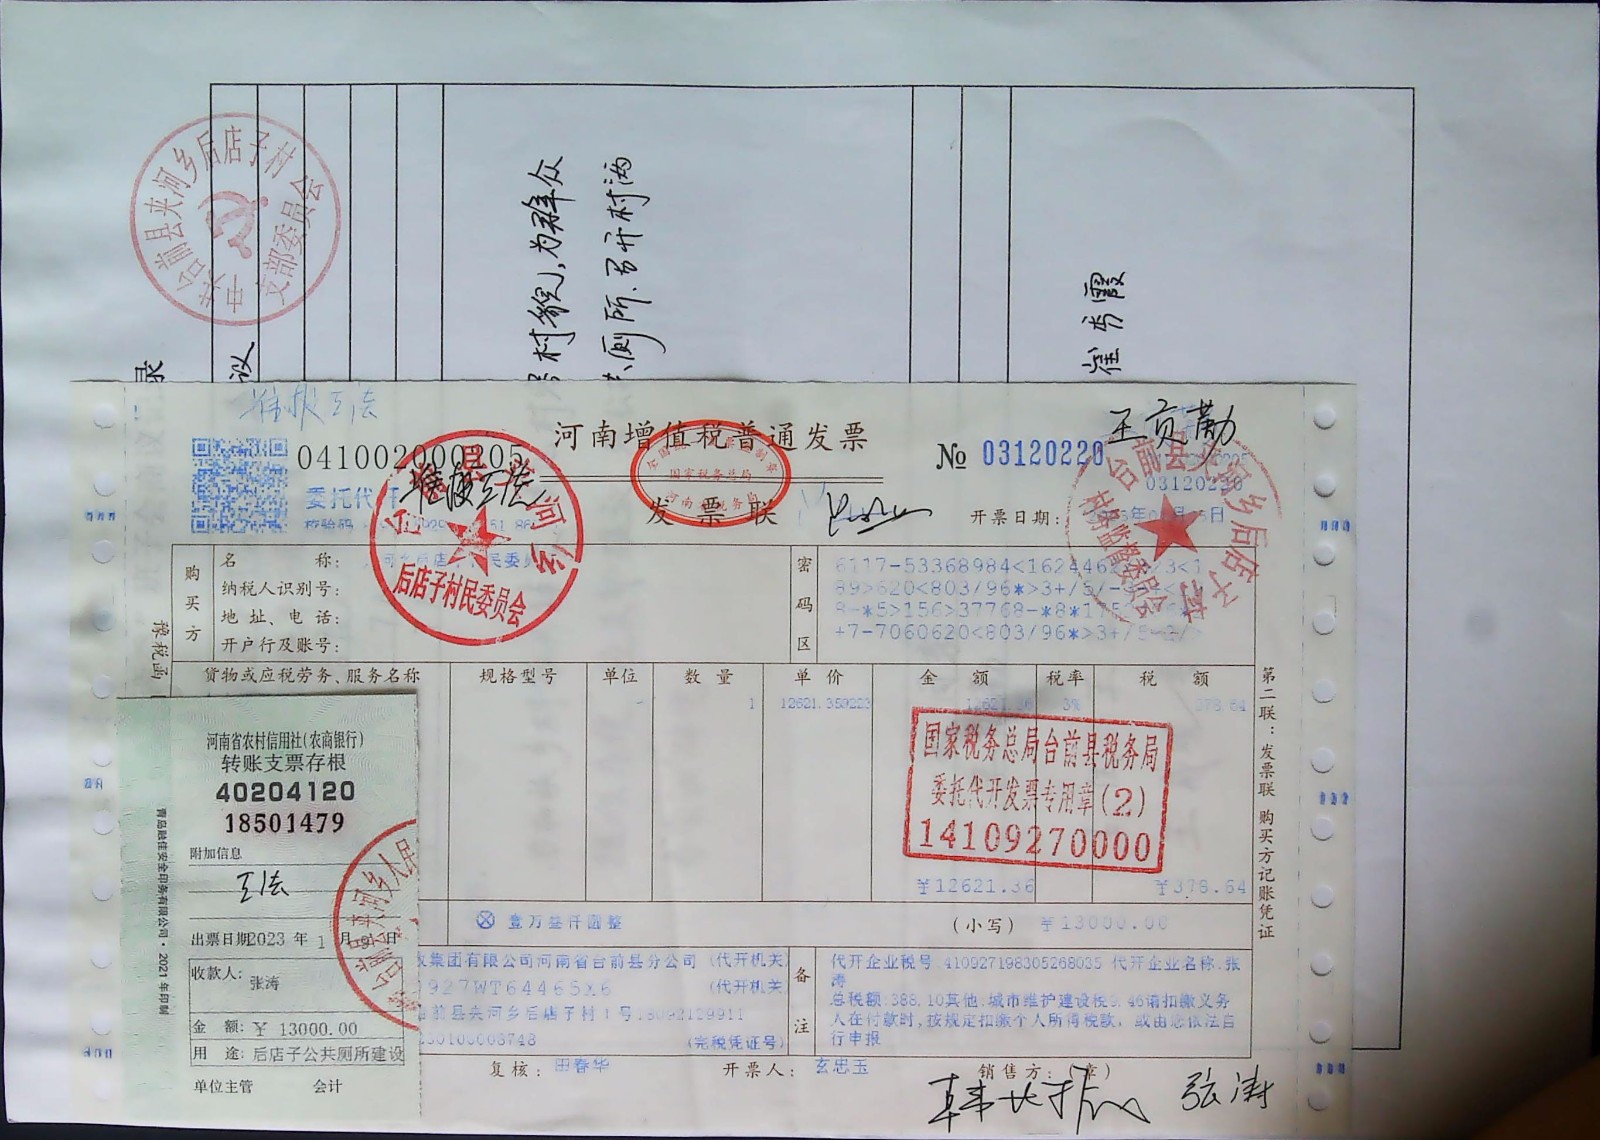 中共台前县夹河乡后店子村
支部委员会
录
议
村貌,为群众
厕所、召开村两
崔秀霞
准报 王法
河南增值税普通发票
041002000205
№ 03120220
王贡勤
03120220
委托代开
准报 王法
发票联
国家税务总局
开票日期:
后店子村民委员会
台前县夹河乡后店子村
村务监督委员会
购买方
名 称:
纳税人识别号:
地 址、电 话:
开户行及账号:
密码区
6117-53368984<162446
89>620<803/96*>3+/5/-
8-*5>156>37768-*8*175
+7-7060620<803/96*>3+/5
货物或应税劳务、服务名称 规格型号 单位 数 量 单 价 金 额 税率 税 额
1 12621.359223 12621.36 3% 378.64
国家税务总局台前县税务局
委托代开发票专用章(2)
14109270000
¥12621.36 ¥378.64
ⓧ 壹万叁仟圆整 (小写) ¥13000.00
第二联:发票联 购买方记账凭证
豫税函
河南省农村信用社(农商银行)
转账支票存根
40204120
18501479
附加信息
王法
出票日期2023 年 1 月 日
收款人: 张涛
金 额: ¥ 13000.00
用 途: 后店子公共厕所建设
单位主管 会计
青岛融佳安全印务有限公司·2021年印制
集团有限公司河南省台前县分公司 (代开机关)
927WT64465X6 (代开机关)
前县夹河乡后店子村1号18092129911
(完税凭证号)
备注
代开企业税号:410927198305268035 代开企业名称:张
涛
总税额:388.10其他:城市维护建设税9.46请扣缴义务
人在付款时,按规定扣缴个人所得税款, 或由您依法自
行申报
复核: 田春华 开票人: 玄忠玉 销售方:(章)
张涛